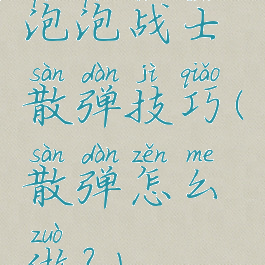 泡泡战士
sàn dàn jì qiǎo
散弹技巧(
sàn dàn zěn me
散弹怎么
zuò
做?)